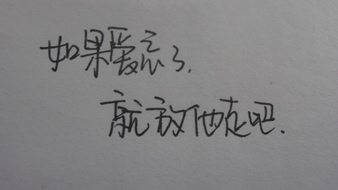 如果爱忘了.
就放他走吧.